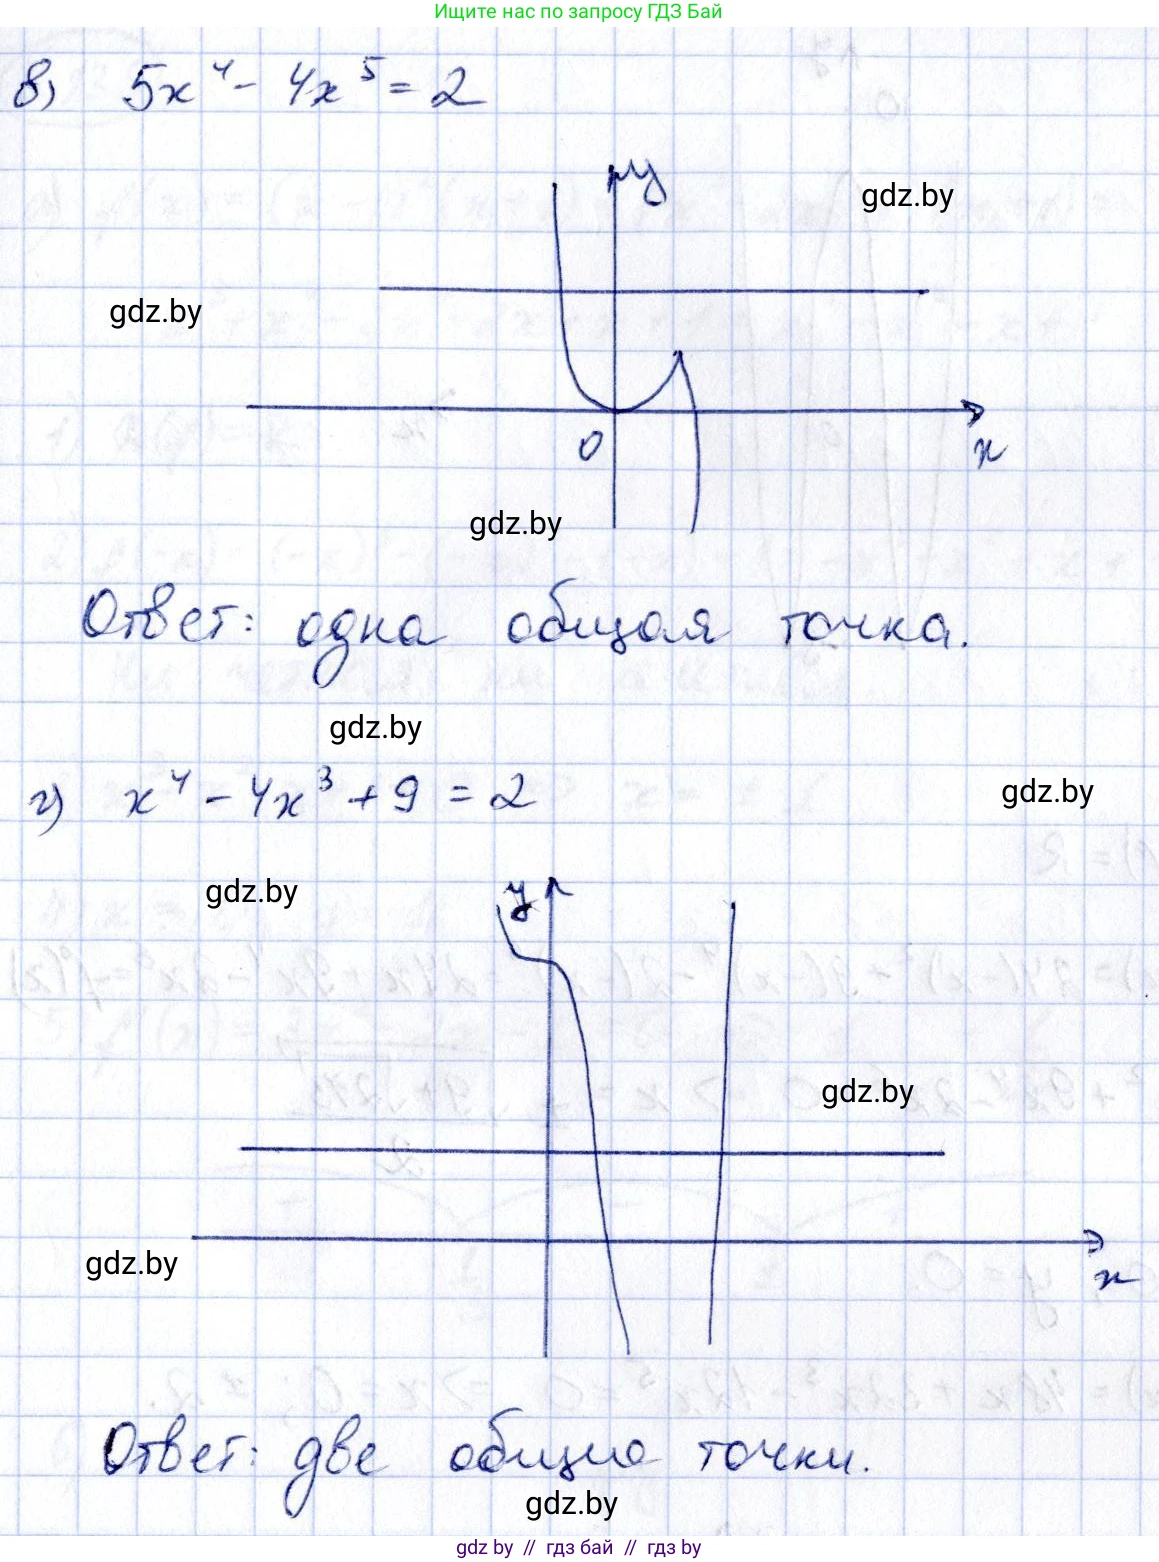 Ищите нас по запросу ГДЗ Бай
в) 5x⁴ - 4x⁵ = 2
y
gdz.by
gdz.by
0
x
gdz.by
Ответ: одна общая точка.
gdz.by
г) x⁴ - 4x³ + 9 = 2
gdz.by
gdz.by
y
gdz.by
gdz.by
x
Ответ: две общие точки.
gdz.by
gdz by // гдз бай // гдз by